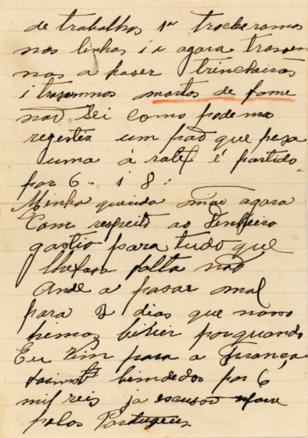 de trabalhos 1º trocheramos
nas linhas i a agora trazem
nos a faser trincheiras
i trazemnos mortos de fome
não sei como podemo
regestir um pão que pesa
uma é partido
por 6 · i 8 ·
Minha querida mãe agora
Com respeito ao Dinheiro
gastio para tudo que
lhefasa falta não
Ande a pasar mal
para 2 dias que nóvo
hemos biber porquando
Eu Vim para a França
bendedos por 6
mil reis ja
pelos Portugueis